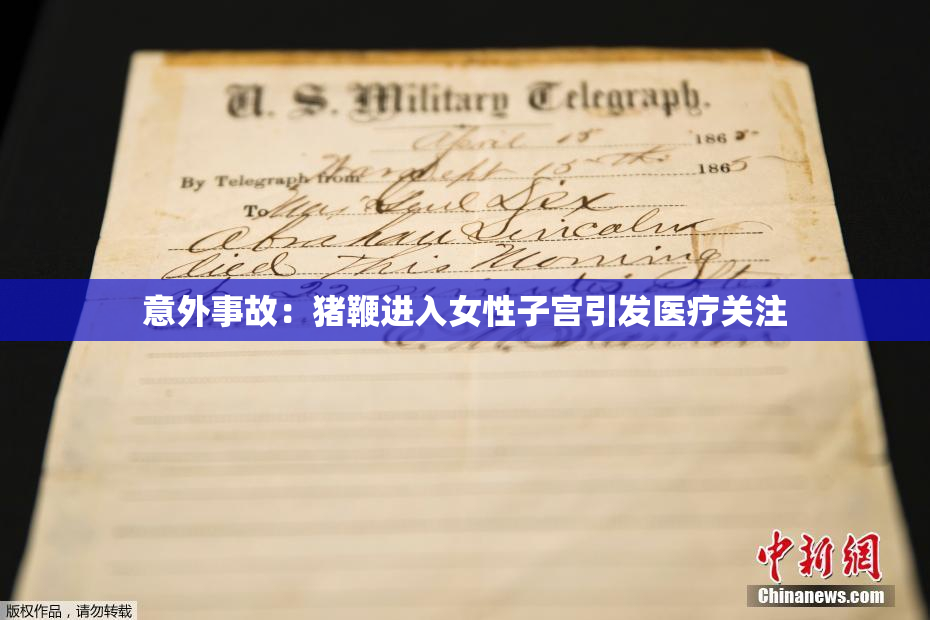 U. S. Military Telegraph.
April 15 1865-
By Telegraph from War Dept 15th 1865
To Maj Genl Dix
Abraham Lincoln
died This Morning
22 minutes after
意外事故：猪鞭进入女性子宫引发医疗关注
E. M. Stanton
中新網
Chinanews.com
版权作品，请勿转载